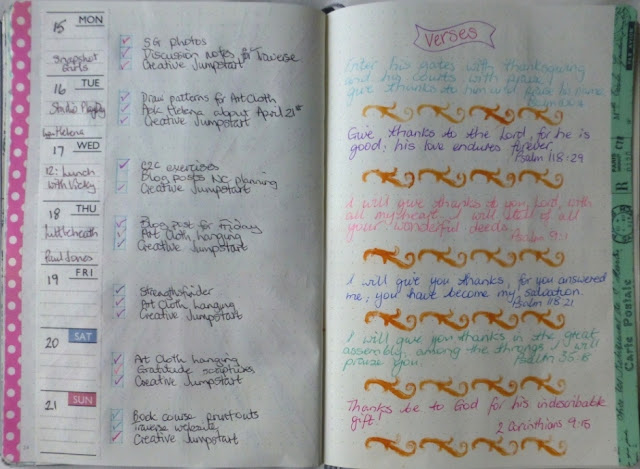 15 MON
Snapshot
Girls
16 TUE
Studio
Helena
17 WED
12: Lunch
with Vicky
18 THU
Littleheath
Paul Jones
19 FRI
20 SAT
21 SUN
SG photos
Discussion notes for Traverse
Creative Jumpstart
Draw patterns for Art Cloth
Ask Helena about April 21st
Creative Jumpstart
C2C exercises
Blog posts NC planning
Creative Jumpstart
Blog post for friday
Art Cloth hanging
Creative Jumpstart
Strengthsfinder
Art Cloth hanging
Creative Jumpstart
Art Cloth hanging
Gratitude scriptures
Creative Jumpstart
Book course printouts
Traverse website
Creative Jumpstart
Verses
Enter his gates with thanksgiving
and his courts with praise;
give thanks to him and praise his name.
Psalm
Give thanks to the Lord, for he is
good; his love endures forever.
Psalm 118:29
I will give thanks to you, Lord, with
all my heart; I will tell of all
your wonderful deeds.
Psalm 9:1
I will give you thanks, for you answered
me; you have become my salvation.
Psalm 118:21
I will give you thanks in the great
assembly; among the throngs I will
praise you. Psalm 35:18
Thanks be to God for his indescribable
gift!
2 Corinthians 9:15
R
Carte Postale